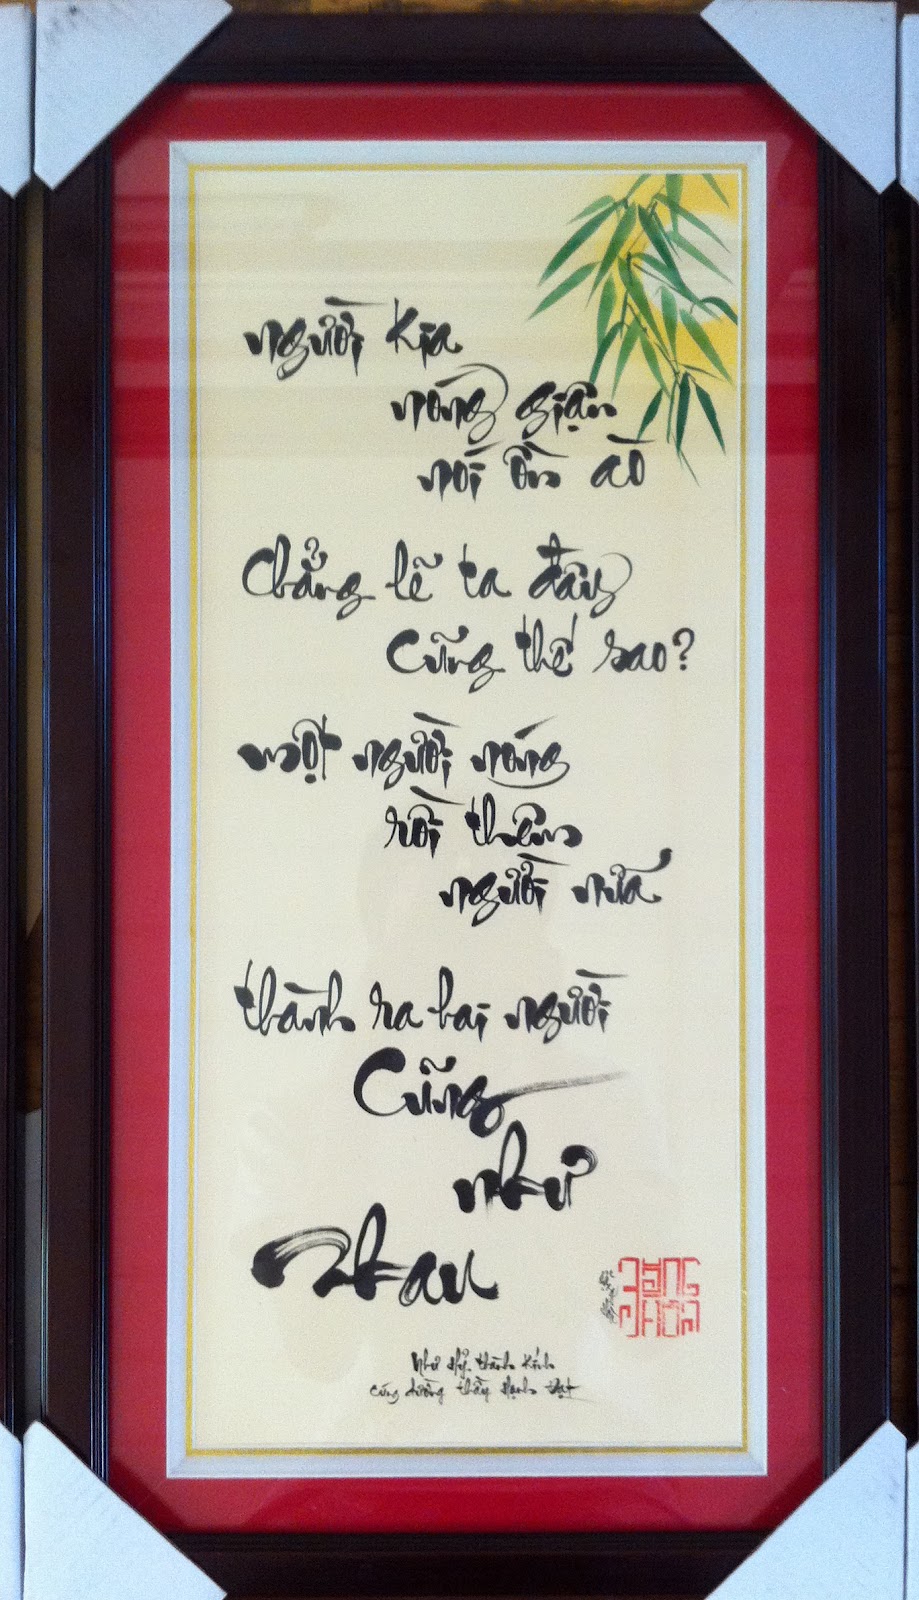 người kia
nóng giận
nói ồn ào
Chẳng lẽ ta đây
Cũng thế sao?
một người nóng
rồi thêm
người nữa
thành ra hai người
Cũng
như
Nhau
Như Hỷ thành kính
cúng dường thầy Hạnh Đạt